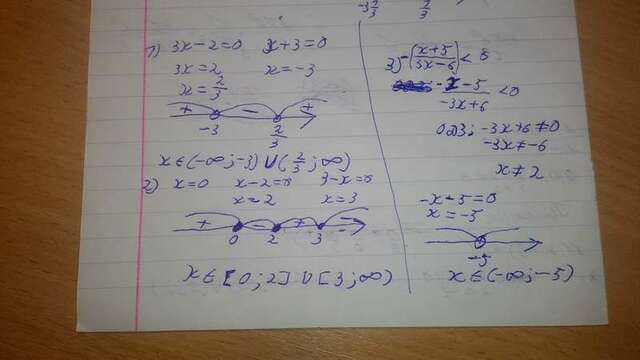 -3 2/3 2/3
1) 3x-2=0 x+3=0
3x=2 x=-3
x=2/3
+ - +
-3 2/3
x∈(-∞;-3)∪(2/3;∞)
2) x=0 x-2=0 3-x=0
x=2 x=3
+ - + -
0 2 3
x∈[0;2]∪[3;∞)
3) -(x+5)/(3x-6) < 0
-x-5/-3x+6 <0
ОДЗ: -3x+6≠0
-3x≠-6
x≠2
-x-5=0
x=-5
-5
x∈(-∞;-5)